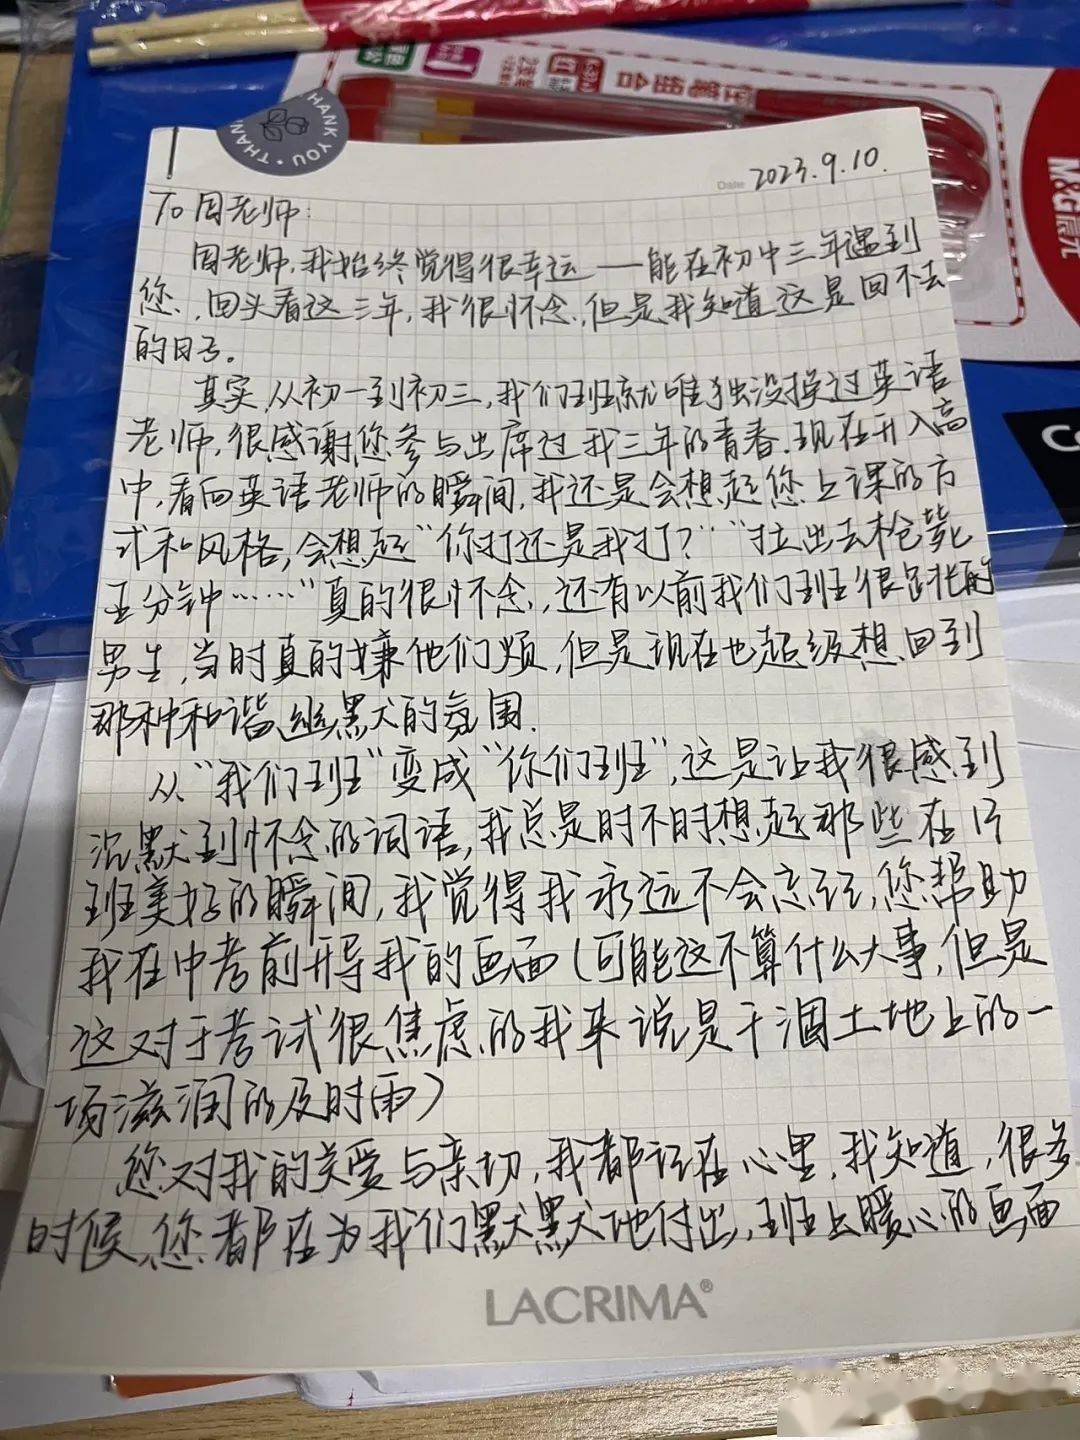 THANK YOU · THAN
红
组合
M&G晨光
Date 2023.9.10.
To 周老师:
周老师,我始终觉得很幸运——能在初中三年遇到
您,回头看这三年,我很怀念,但是我知道这是回不去
的日子。
其实从初一到初三,我们班就唯独没换过英语
老师,很感谢您参与出席过我三年的青春.现在升入高
中,看向英语老师的瞬间,我还是会想起您上课的方
式和风格,会想起“你打还是我打?”“拉出去枪毙
五分钟……”真的很怀念,还有以前我们班很跳的
男生,当时真的嫌他们烦,但是现在也超级想回到
那种和谐幽默的氛围.
从“我们班”变成“你们班”,这是让我很感到
沉默到怀念的词语,我总是时不时想起那些在17
班美好的瞬间,我觉得我永远不会忘记,您帮助
我在中考前开导我的画面(可能这不算什么大事,但是
这对于考试很焦虑的我来说是干涸土地上的一
场滋润的及时雨)
您对我的关爱与亲切,我都记在心里,我知道,很多
时候,您都在为我们默默地付出,班上暖心的画面
LACRIMA®